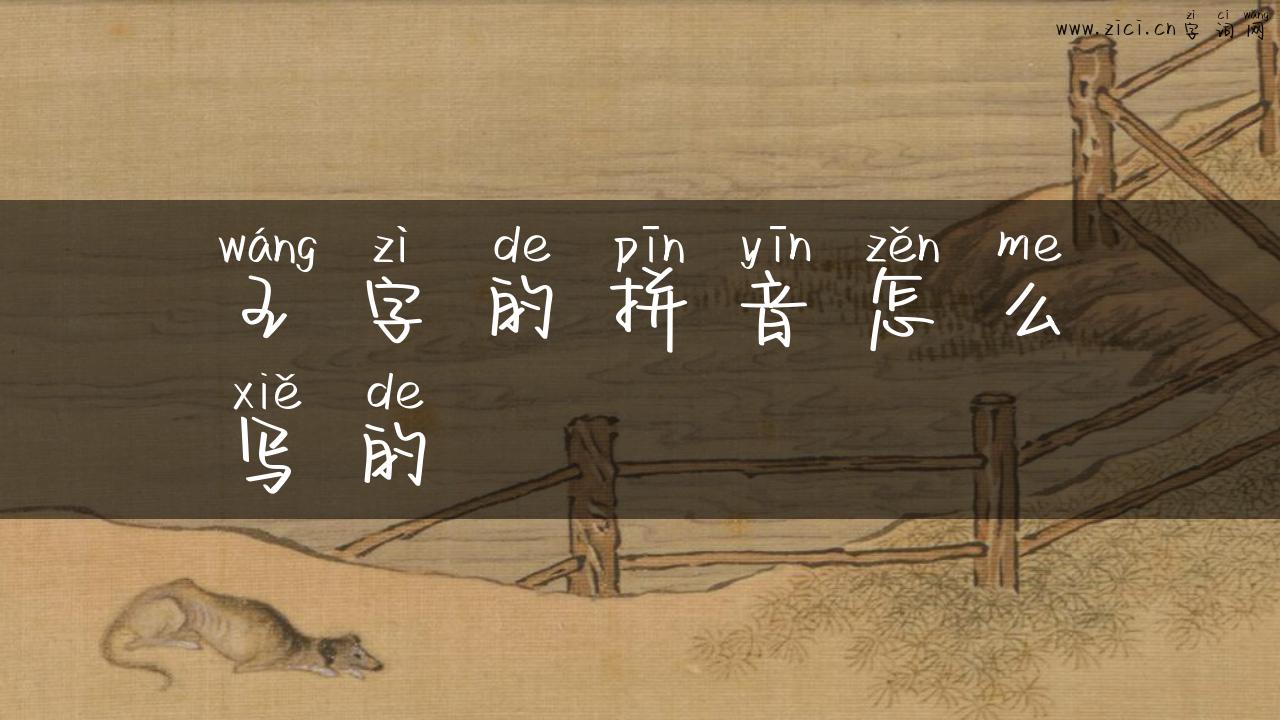 zì cí wǎng
www.zici.cn 字词网
wáng zì de pīn yīn zěn me
王字的拼音怎么
xiě de
写的